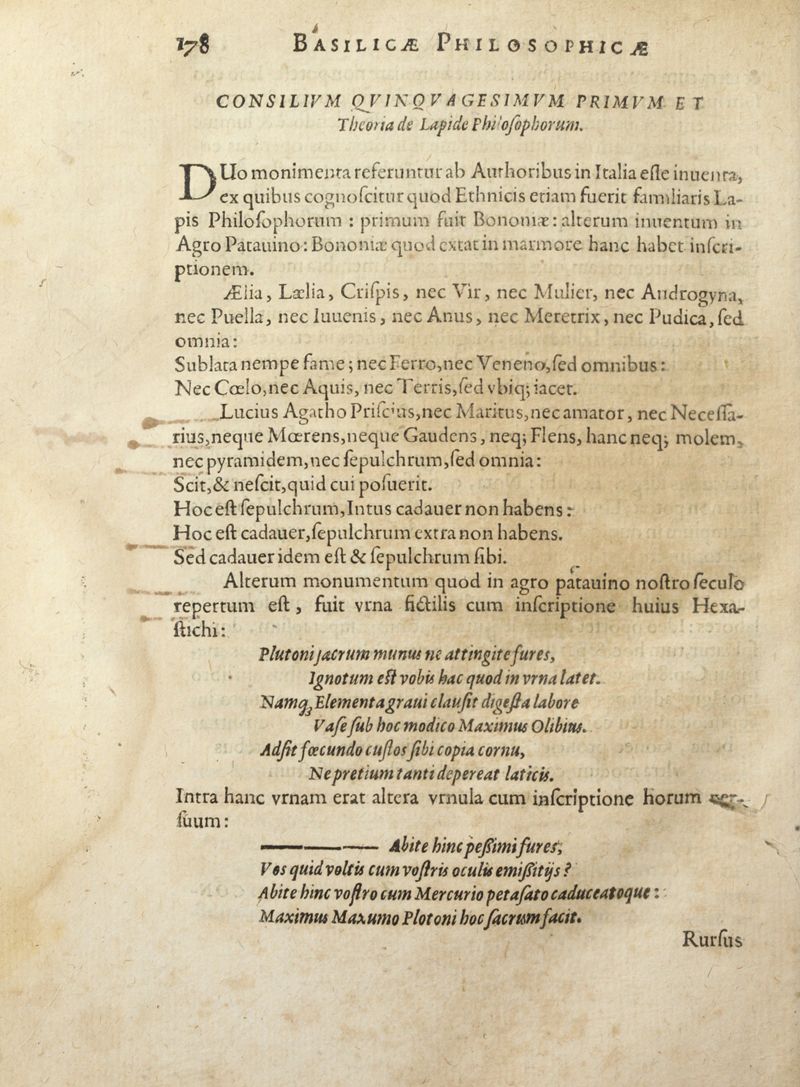 178 BASILICÆ PHILOSOPHICÆ
CONSILIVM QVINQVAGESIMVM PRIMVM ET
Theoria de Lapide Philosophorum.
DUo monimenta referuntur ab Authoribus in Italia eſſe inuenta,
ex quibus cognoſcitur quod Ethnicis etiam fuerit familiaris La-
pis Philoſophorum : primum fuit Bononiæ: alterum inuentum in
Agro Patauino: Bononiæ quod extat in marmore hanc habet inſcri-
ptionem.
Ælia, Lælia, Criſpis, nec Vir, nec Mulier, nec Androgyna,
nec Puella, nec Iuuenis, nec Anus, nec Meretrix, nec Pudica, ſed
omnia:
Sublata nempe fame; nec Ferro, nec Veneno, ſed omnibus:
Nec Cœlo, nec Aquis, nec Terris, ſed vbiq; iacet.
Lucius Agatho Priſcius, nec Maritus, nec amator, nec Neceſſa-
rius, neque Mœrens, neque Gaudens, neq; Flens, hanc neq; molem,
nec pyramidem, nec ſepulchrum, ſed omnia:
Scit, & neſcit, quid cui poſuerit.
Hoc eſt ſepulchrum, Intus cadauer non habens:
Hoc eſt cadauer, ſepulchrum extra non habens.
Sed cadauer idem eſt & ſepulchrum ſibi.
Alterum monumentum quod in agro patauino noſtro ſeculo
repertum eſt, fuit vrna fictilis cum inſcriptione huius Hexa-
ſtichi:
Plutoni ſacrum munus ne attingite fures,
Ignotum eſt vobis hac quod in vrna latet.
Namq; Elementa graui clauſit digeſta labore
Vaſe ſub hoc modico Maximus Olibius.
Adſit fœcundo cuſtos ſibi copia cornu,
Ne pretium tanti depereat laticis.
Intra hanc vrnam erat altera vrnula cum inſcriptione horum
ſuum:
Abite hinc peſsimi fures,
Vos quid voltis cum voſtris oculis emiſsitijs?
Abite hinc voſtro cum Mercurio petaſato caduceatoque:
Maximus Maxumo Plotoni hoc ſacrum facit.
Rurſus